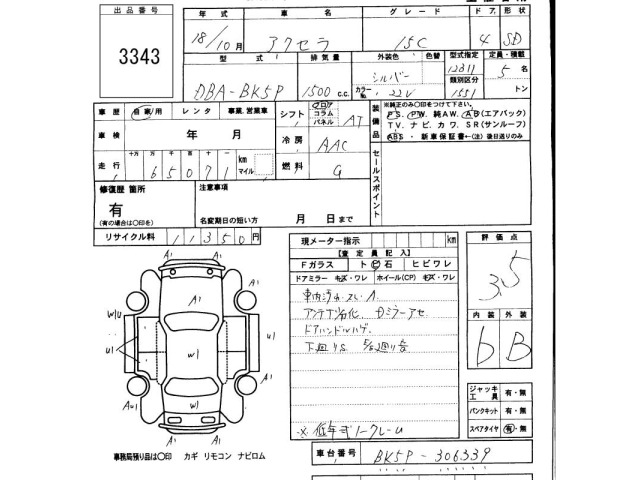 出品番号
3343
年式 車名 グレード ドア 形状
18/10月 アクセラ 15C 4 SD
型式 排気量 外装色 色替 型式指定 定員・積載
DBA-BK5P 1500 c.c. シルバー カラーNo. 22V 12811 類別区分 1551 5 名 トン
車歴 自家用 レンタ 事業.営業車
シフト フロア コラム パネル AT
車検 年 月
冷房 AAC
走行 十万 万 千 百 十 一 km マイル
65071
燃料 G
装備品
※純正のみ○印をつけて下さい。
P S. P W. 純AW. A B(エアバック)
TV. ナビ. カワ. SR(サンルーフ)
ABS・新車保証書←(注)後日送りのみ
セールスポイント
修復歴 箇所
有
(有の場合は○印を)
注意事項
名変期日の短い方 月 日まで
リサイクル料 11350円
現メーター指示 km
【査定員記入】
Fガラス ト ビ 石 ヒビワレ
ドアミラー キズ・ワレ ホイール(CP) キズ・ワレ
アンテナ劣化
ドアハンドルハゲ
※低年式ノークレーム
評価点
3.5
内装 外装
b B
ジャッキ 工具 有・無
パンクキット 有・無
スペアタイヤ 有・無
A1 A1
A1 A1
A1
W/U U1
U1 U1
W1
AU1 A1
W1
A1 A1
A1
事務局預り品は○印 カギ リモコン ナビロム
車台番号 BK5P-306339